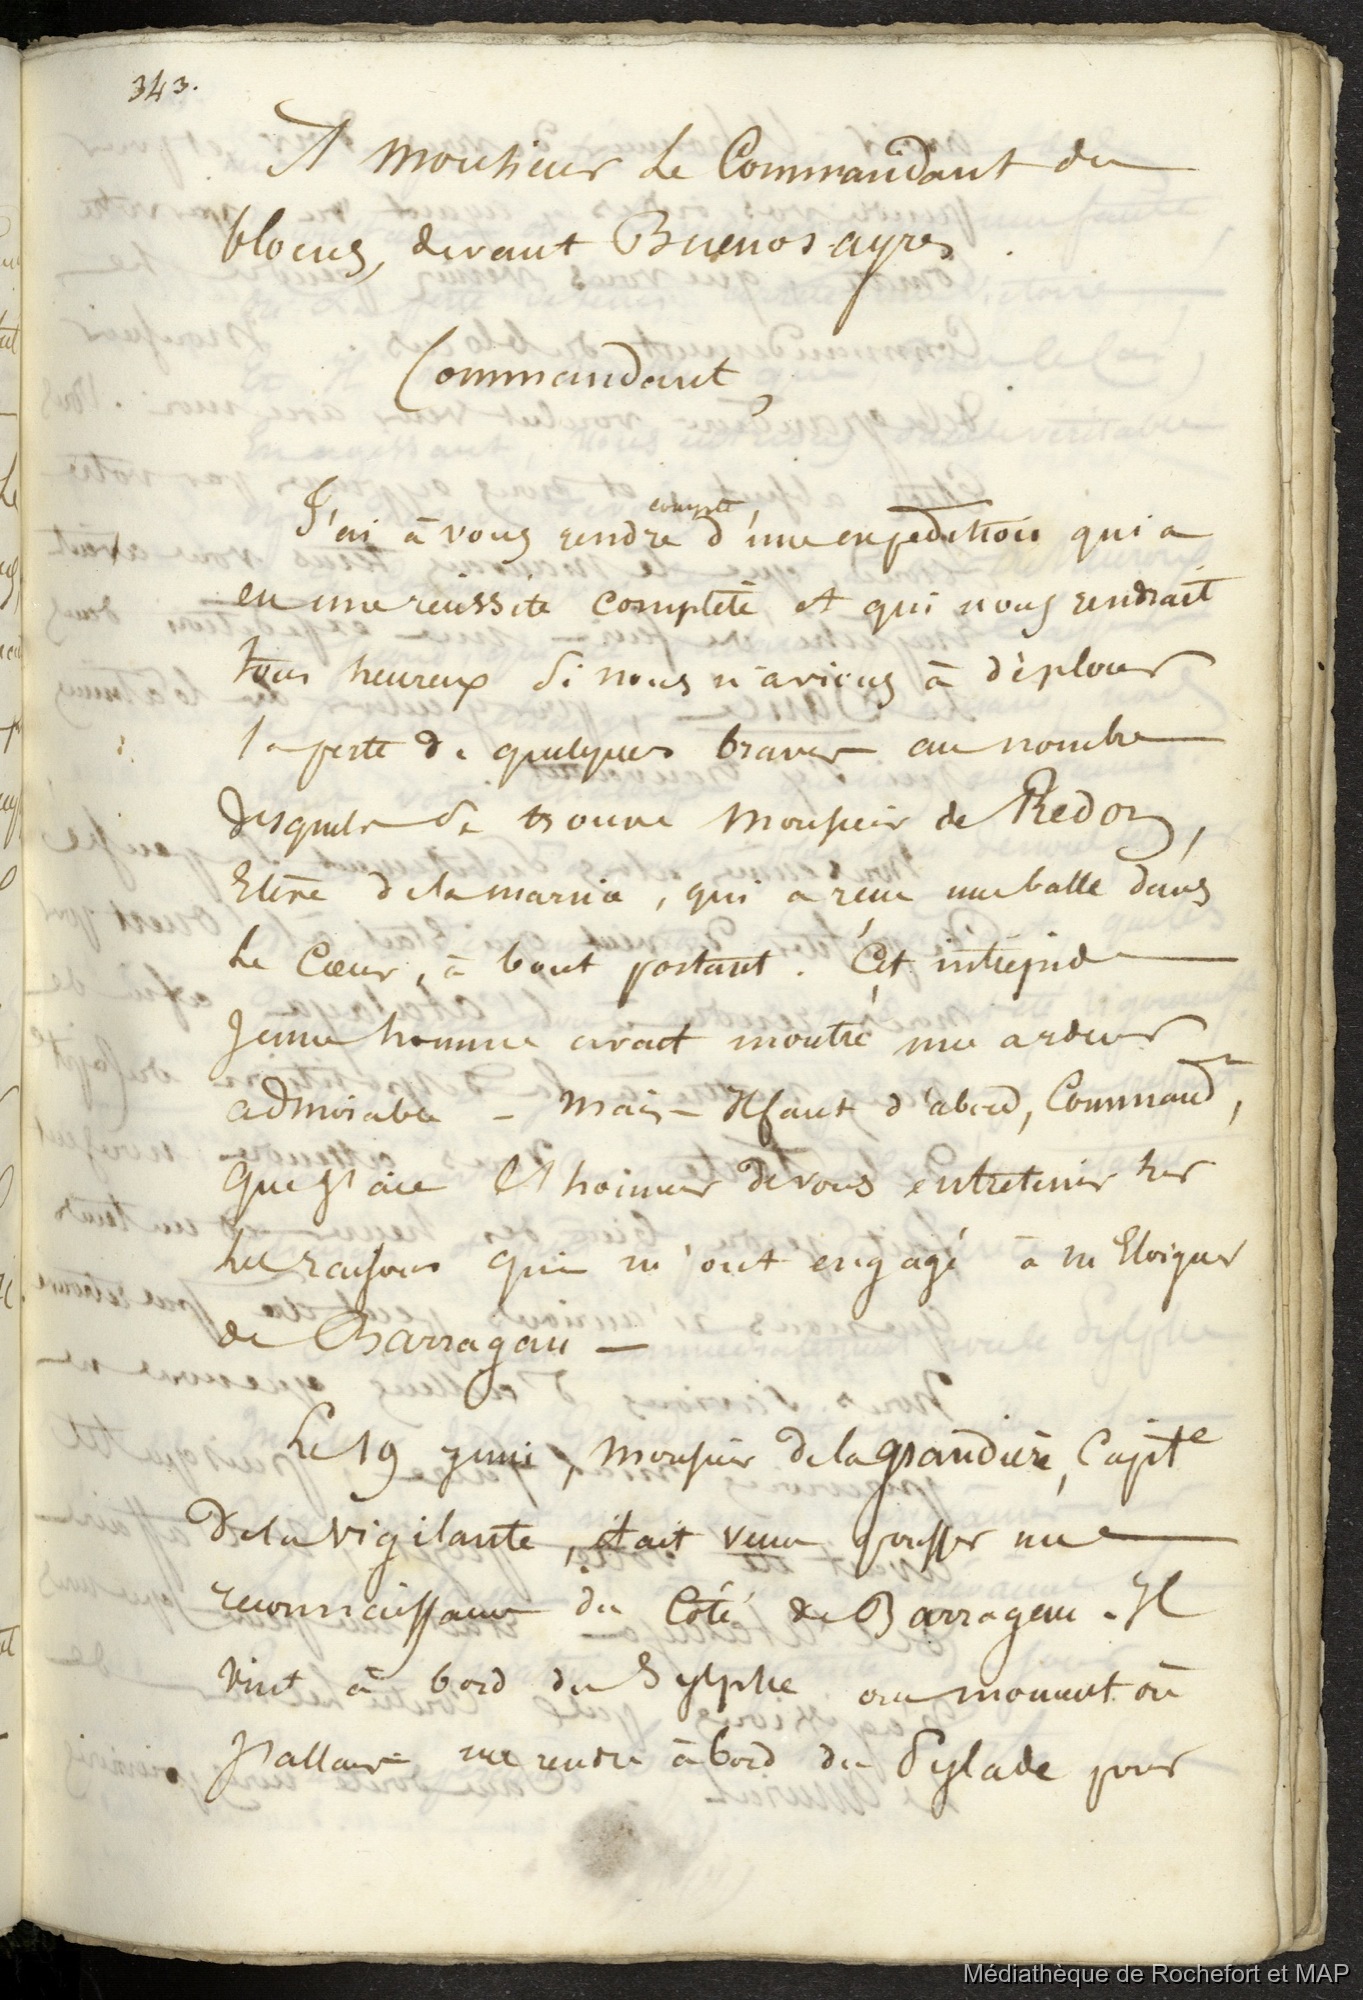 343.
A Monsieur Le Commandant du
blocus, devant Buenos-ayres.
Commandant,
J'ai à vous rendre compte d'une expedition qui a
eu une réussite complète, et qui nous rendrait
tous heureux si nous n'avions à déplorer
la perte de quelques braves au nombre
desquels se trouve Monsieur de Redon,
Elève de la marine, qui a reçu une balle dans
Le Cœur, à bout portant. Cet intrépide
Jeune homme avait montré une ardeur
admirable - Mais - Il faut d'abord, Command.t,
Que j'aie l'honneur de vous entretenir sur
les raisons qui m'ont engagé à m'Eloigner
de Barragan -
Le 19 juin, Monsieur de la grandière, Capit.e
De la Vigilante, était venu pousser une
reconnaissance du Côté de Barragan. Il
vint à bord du Sylphe au moment où
J'allais me rendre à bord du Pylade pour
Médiathèque de Rochefort et MAP